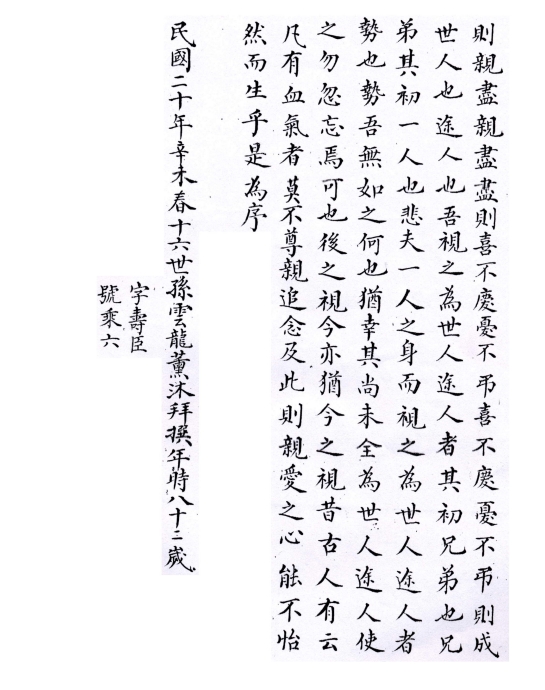 則親盡親盡盡則喜不慶憂不弔喜不慶憂不弔則成
世人也途人也吾視之為世人途人者其初兄弟也兄
弟其初一人也悲夫一人之身而視之為世人途人者
勢也勢吾無如之何也猶幸其尚未全為世人途人使
之勿忽忘焉可也後之視今亦猶今之視昔古人有云
凡有血氣者莫不尊親追念及此則親愛之心能不怡
然而生乎是為序
民國二十年辛未春十六世孫雲龍薰沐拜撰年時八十二歲
字壽臣
號乘六